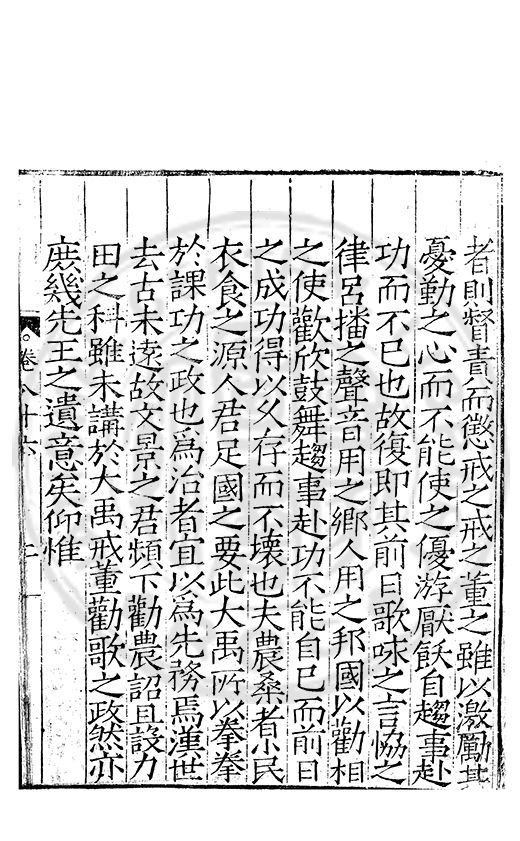 者則督責而懲戒之戒之董之雖以激勵其
憂勤之心而不能使之優游厭飫自趨事赴
功而不已也故復即其前日歌咏之言協之
律呂播之聲音用之鄉人用之邦國以勸相
之使歡欣鼓舞趨事赴功不能自已而前日
之成功得以久存而不壞也夫農桑者小民
衣食之源人君足國之要此大禹所以拳拳
於課功之政也為治者宜以為先務焉漢世
去古未遠故文景之君頻下勸農詔且設力
田之科雖未講於大禹戒董勸歌之政然亦
庶幾先王之遺意矣仰惟
卷八十六
二